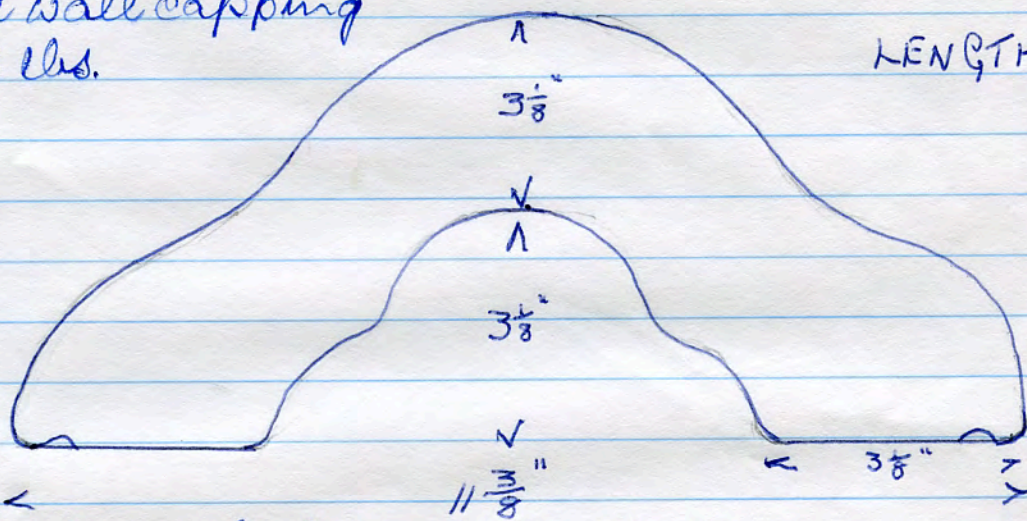 wall capping
lbs.
LENGTH
3 1/8"
3 1/8"
3 1/8"
11 3/8"